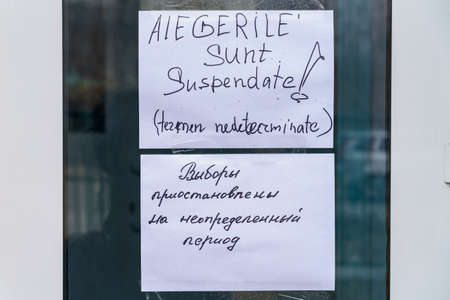 AlEGERILE
Sunt
Suspendate!
(termen nedeterminate)
Выборы
приостановлены
на неопределенный
период